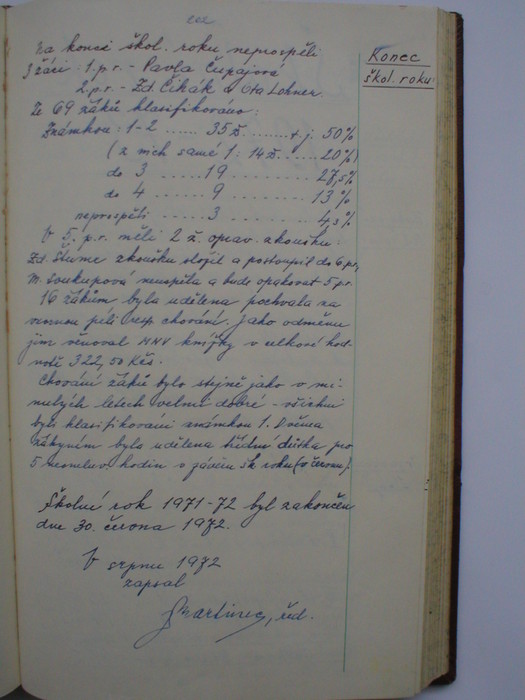 Na konci škol. roku neprospěli
3 žáci: 1.p.r. - Pavla Čupajová
2.p.r. - Zd. Čihák a Ota Lohner.
Ze 69 žáků klasifikováno:
Známkou: 1-2 ...... 35 ž. ....... t.j. 50%
(z nich samé 1: 14 ž. ..... 20%)
do 3 ..... 19 ......... 27,5%
do 4 ..... 9 ........ 13%
neprospěli ..... 3 ....... 4,5%
V 5. p.r. měli 2 ž. oprav. zkoušku:
Zd. Šturc zkoušku složil a postoupil do 6.p.r,
M. Soukupová neuspěla a bude opakovat 5.p.r.
16 žákům byla udělena pochvala za
vzornou péli resp. chování. Jako odměnu
jim věnoval MNV knížky v celkové hod-
notě 322,50 Kčs.
Chování žáků bylo stejně jako v mi-
nulých letech velmi dobré - všichni
byli klasifikováni známkou 1. Dvěma
žákyním byla udělena třídní důtka pro
5 neomluv. hodin v závěru šk. roku (v červnu).
Školní rok 1971-72 byl zakončen
dne 30. června 1972.
V srpnu 1972
zapsal
řed.
Konec
škol. roku: